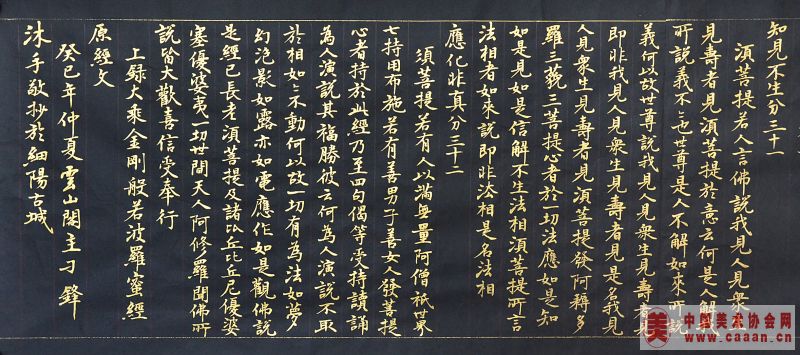 知見不生分三十一
須菩提若人言佛說我見人見衆生
見壽者見須菩提於意云何是人解我
所說義不不也世尊是人不解如來所說
義何以故世尊說我見人見衆生見壽者見
即非我見人見衆生見壽者見是名我見
人見衆生見壽者見須菩提發阿耨多
羅三藐三菩提心者於一切法應如是知
如是見如是信解不生法相須菩提所言
法相者如來說即非法相是名法相
應化非真分三十二
須菩提若有人以滿無量阿僧祇世界
七持用布施若有善男子善女人發菩提
心者持於此經乃至四句偈等受持讀誦
為人演說其福勝彼云何為人演說不取
於相如如不動何以故一切有為法如夢
幻泡影如露亦如電應作如是觀佛說
是經已長老須菩提及諸比丘比丘尼優婆
塞優婆夷一切世間天人阿修羅聞佛所
說皆大歡喜信受奉行
上録大乘金剛般若波羅蜜經
原經文
癸巳年仲夏雲山閣主刁鋒
沐手敬抄於細陽古城
美 中国美术协会网
www.caaan.cn